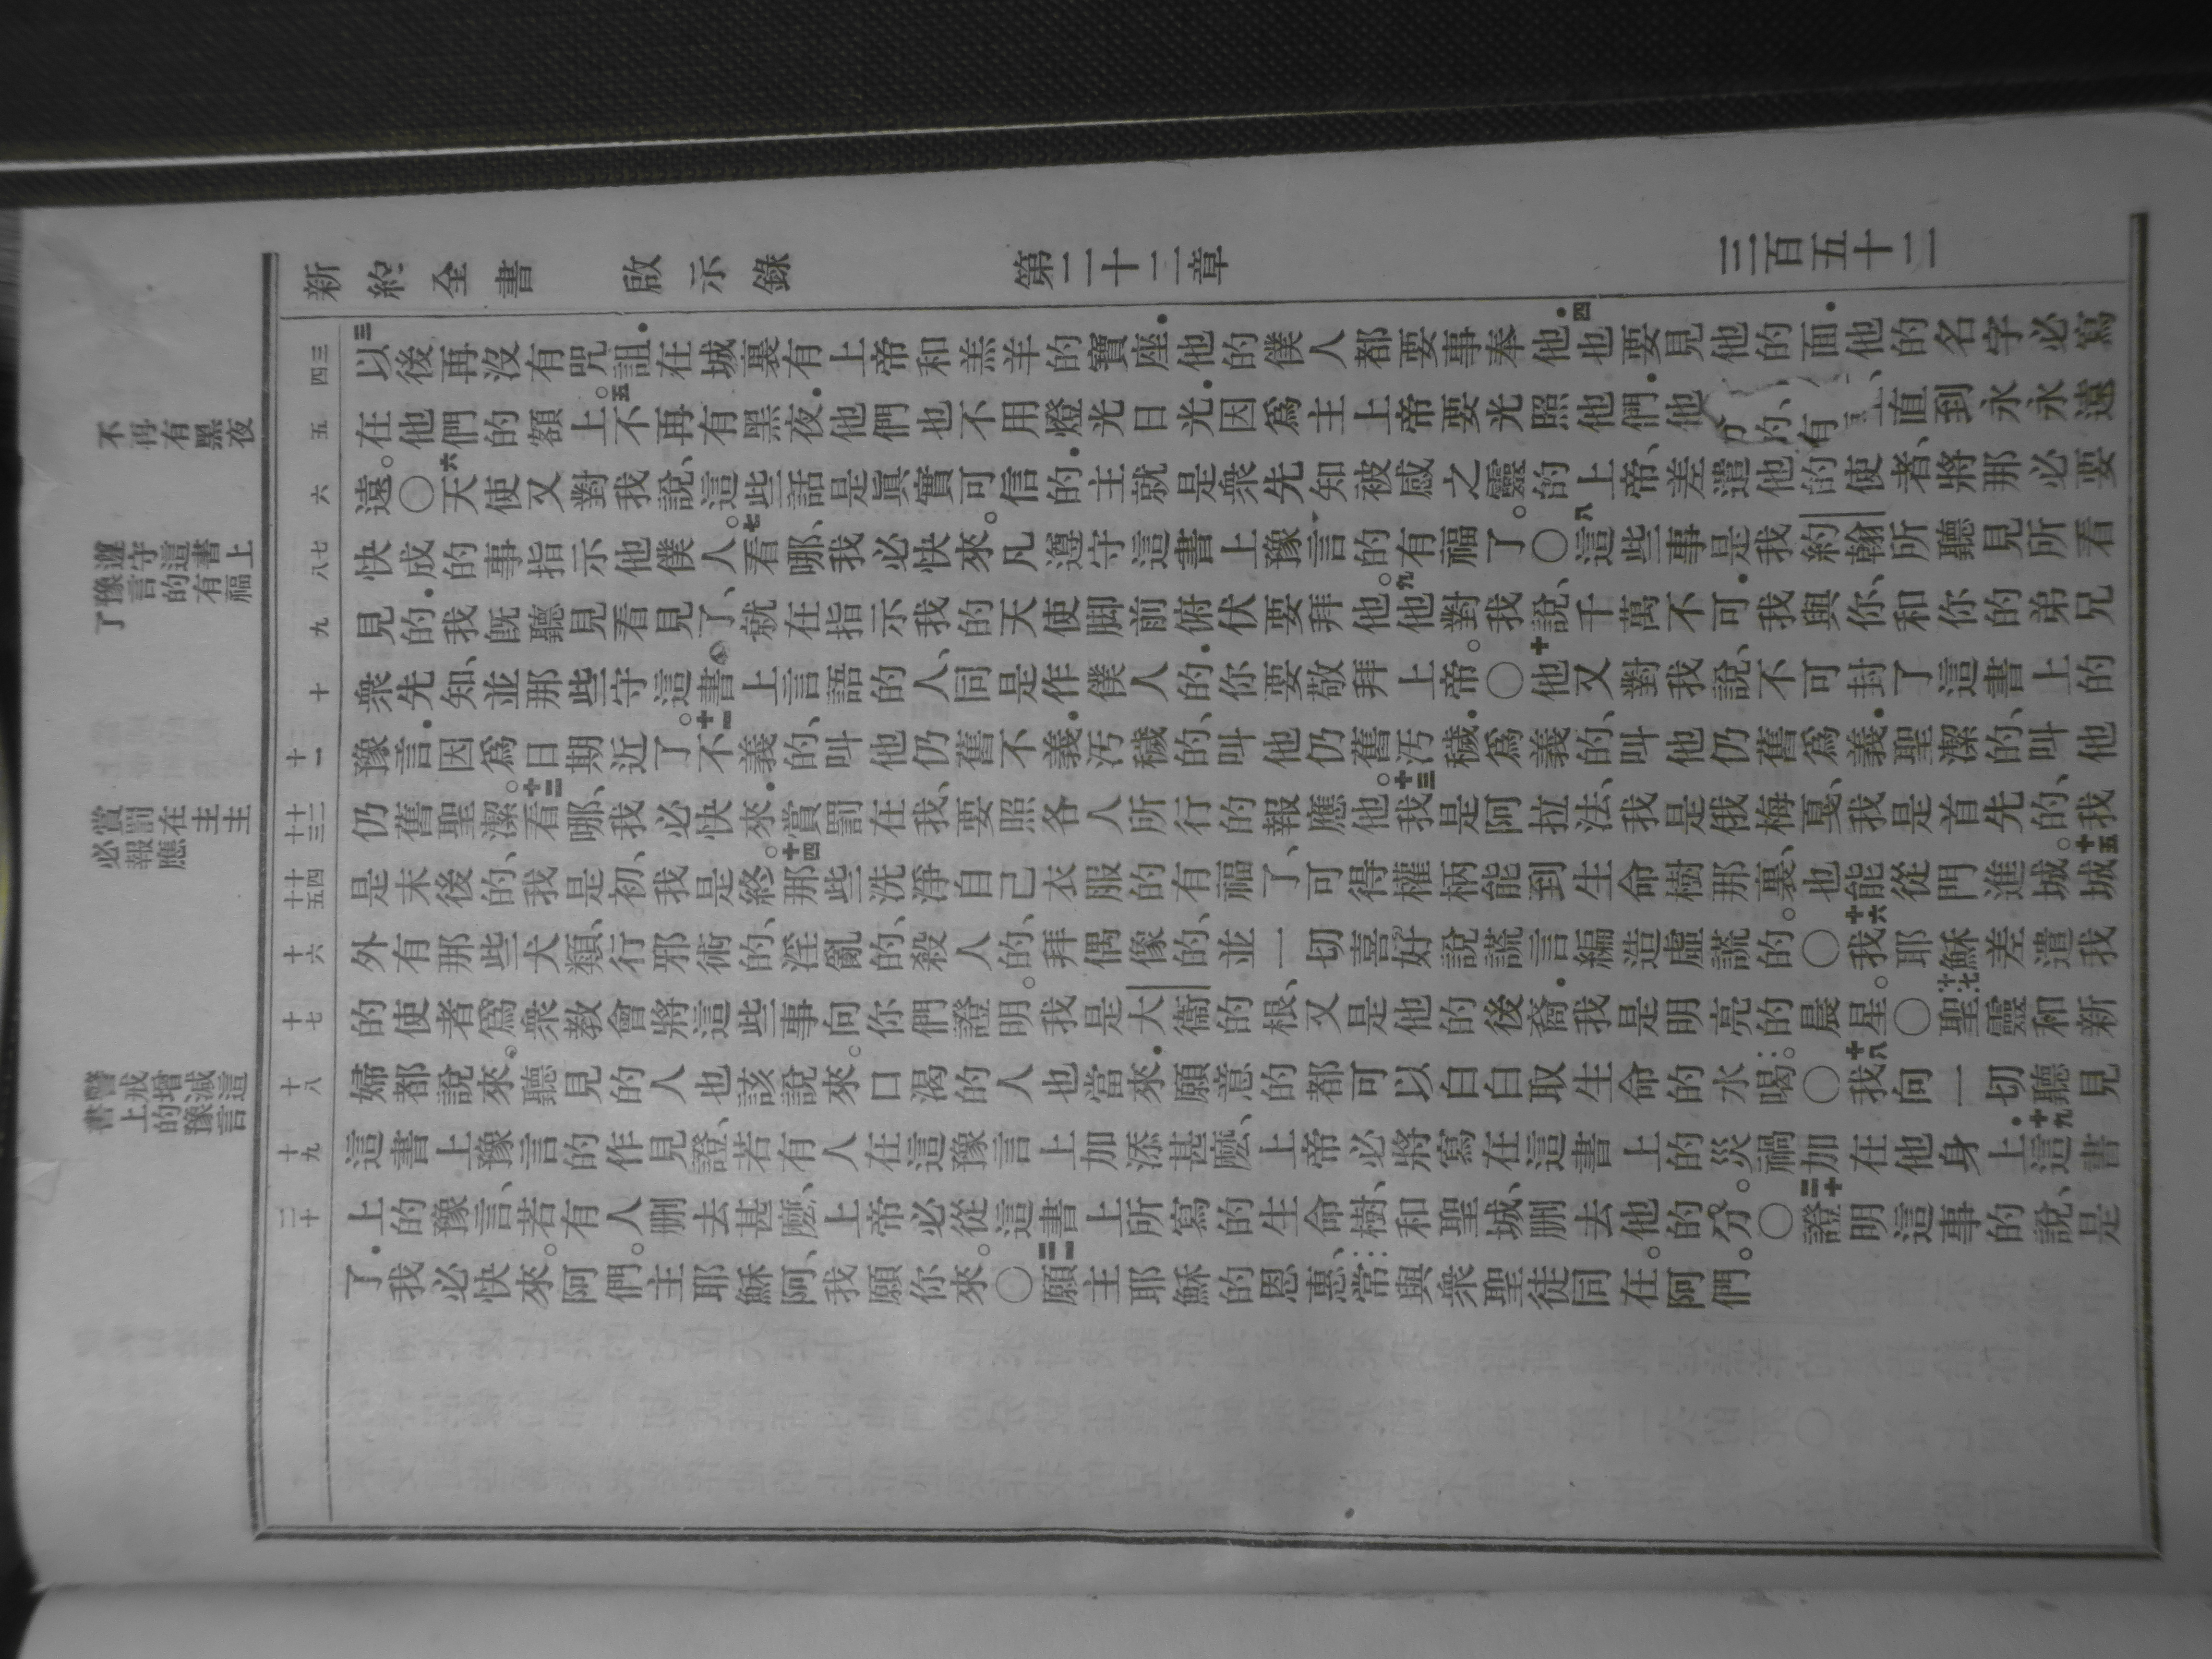 新約全書 啟示錄 第二十二章 三百五十二
不再有黑夜
遵守這書上
豫言的有福
了
賞罰在主主
必報應
警戒增減這
書上的豫言
三四
五
六
七八
九
十
十一
十二十三
十四十五
十六
十七
十八
十九
二十
三以後再沒有咒詛．在城裏有上帝和羔羊的寶座．他的僕人都要事奉他．四也要見他的面．他的名字必寫
在他們的額上。五不再有黑夜．他們也不用燈光日光．因爲主上帝要光照他們．他 有 直到永永遠
遠。〇六天使又對我說、這些話是眞實可信的．主就是衆先知被感之靈的上帝、差遣他的使者、將那必要
快成的事指示他僕人。七看哪、我必快來。凡遵守這書上豫言的有福了。〇八這些事是我約翰所聽見所看
見的．我旣聽見看見了、就在指示我的天使脚前俯伏要拜他。九他對我說、千萬不可．我與你、和你的弟兄
衆先知、並那些守這書上言語的人、同是作僕人的．你要敬拜上帝。〇十他又對我說、不可封了這書上的
豫言．因爲日期近了。十一不義的、叫他仍舊不義．汚穢的、叫他仍舊汚穢．爲義的、叫他仍舊爲義．聖潔的、叫他
仍舊聖潔。十二看哪、我必快來．賞罰在我、要照各人所行的報應他。十三我是阿拉法、我是俄梅戛、我是首先的、我
是末後的、我是初、我是終。十四那些洗淨自己衣服的有福了、可得權柄能到生命樹那裏、也能從門進城。十五城
外有那些犬類、行邪術的、淫亂的、殺人的、拜偶像的、並一切喜好說謊言編造虛謊的。〇十六我耶穌差遣我
的使者爲衆教會將這些事向你們證明。我是大衞的根、又是他的後裔．我是明亮的晨星。〇十七聖靈和新
婦都說來。聽見的人也該說來。口渴的人也當來．願意的都可以白白取生命的水喝。〇十八我向一切聽見
這書上豫言的作見證、若有人在這豫言上加添甚麽、上帝必將寫在這書上的災禍加在他身上．十九這書
上的豫言、若有人删去甚麽、上帝必從這書上所寫的生命樹、和聖城、删去他的分。〇二十證明這事的說、是
了．我必快來。阿們。主耶穌阿、我願你來。〇二一願主耶穌的恩惠、常與衆聖徒同在。阿們。